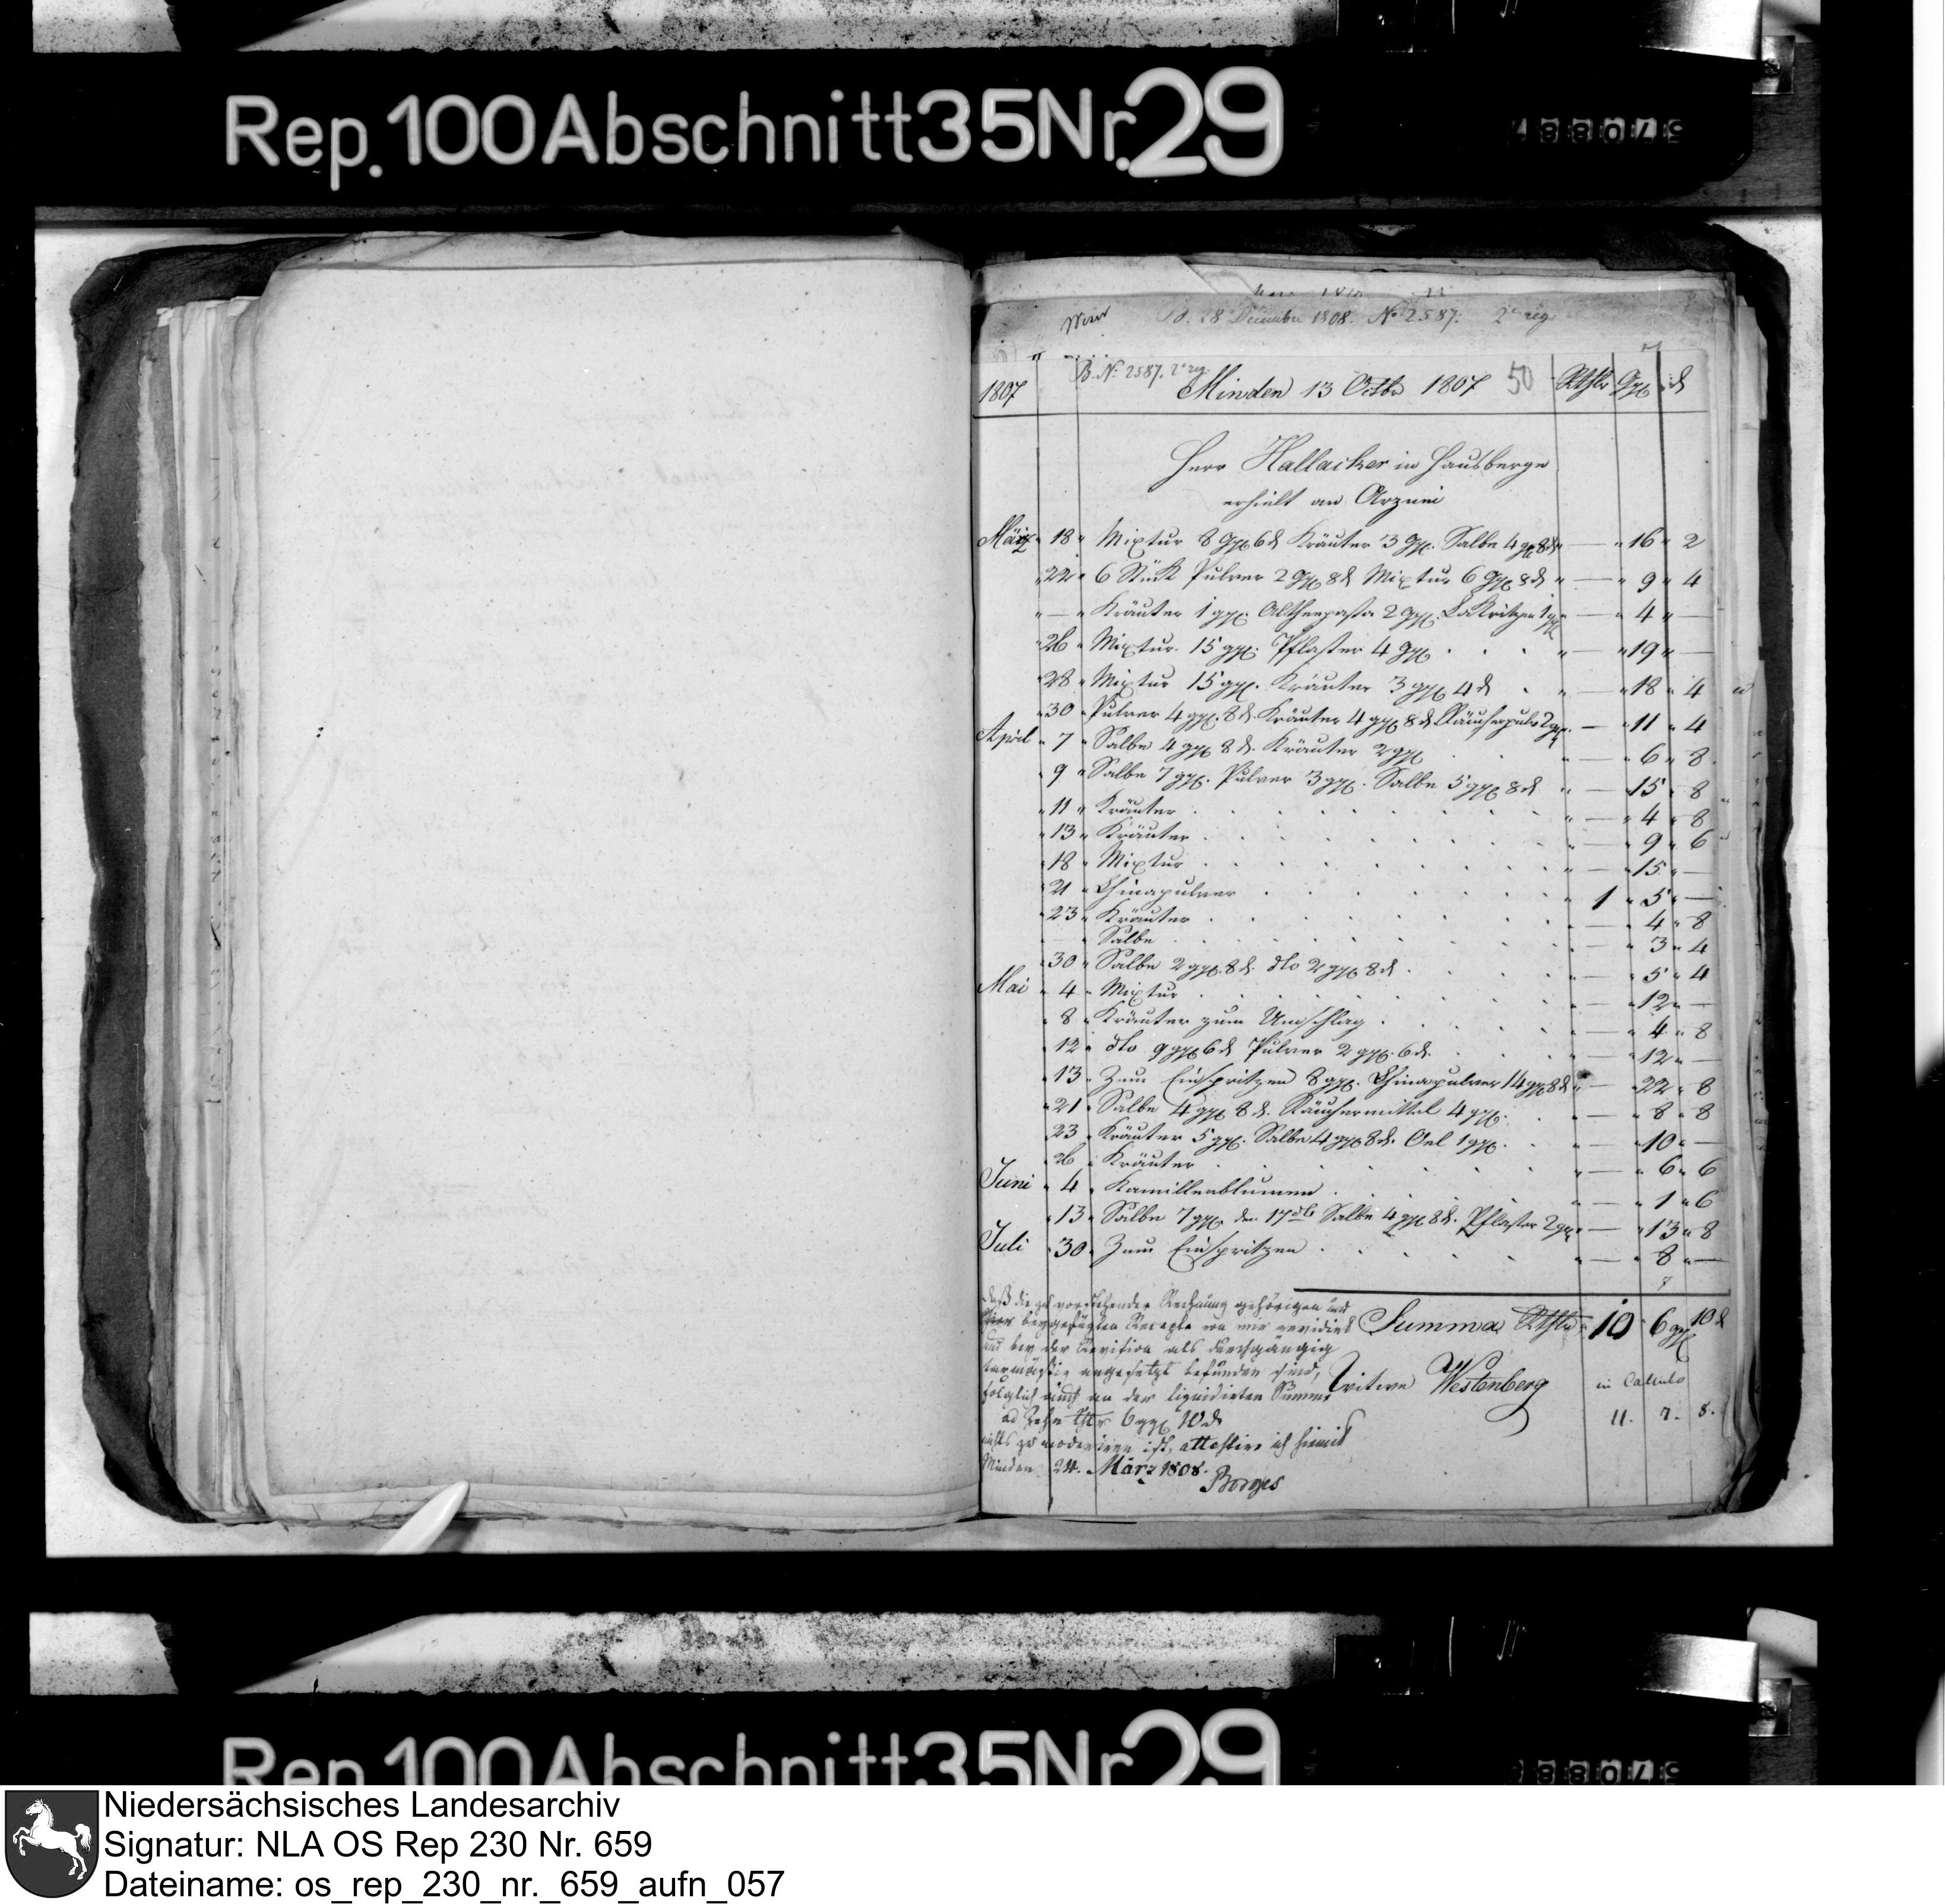 Rep. 100 Abschnitt 35 Nr. 29
57088
d. 28 December 1808. No 2587. 2r reg
B. No 2587. 2r reg.
1807 Minden 13 Octbr 1807 50 Rthlr ggl d
Herr Hallacker in Hausberge
erhielt an Arznei
März 18 Mixtur 8 ggl 6 d Kräuter 3 ggl. Salbe 4 ggl 8 d — 16 2
22 6 Stück Pulver 2 ggl 8 d Mixtur 6 ggl 8 d — 9 4
— Kräuter 1 ggl. Altheepasta 2 ggl. Lakritzen 1 ggl — 4 —
26 Mixtur 15 ggl. Pflaster 4 ggl — 19 —
28 Mixtur 15 ggl. Kräuter 3 ggl 4 d — 18 4
30 Pulver 4 ggl. 8 d. Kräuter 4 ggl 8 d Räucherpulv 2 ggl. — 11 4
April 7 Salbe 4 ggl 8 d. Kräuter 2 ggl — 6 8
9 Salbe 7 ggl. Pulver 3 ggl. Salbe 5 ggl 8 d — 15 8
11 Kräuter — 4 8
13 Kräuter — 9 6
18 Mixtur — 15 —
21 Chinapulver 1 5 —
23 Kräuter — 4 8
— Salbe — 3 4
30 Salbe 2 ggl. 8 d. dto 2 ggl 8 d — 5 4
Mai 4 Mixtur — 12 —
8 Kräuter zum Umschlag — 4 8
12 dto 9 ggl 6 d Pulver 2 ggl. 6 d. — 12 —
13 Zum Einspritzen 8 ggl. Chinapulver 14 ggl 8 d — 22 8
21 Salbe 4 ggl 8 d. Räuchermittel 4 ggl. — 8 8
23 Kräuter 5 ggl. Salbe 4 ggl 8 d. Oel 1 ggl. — 10 —
26 Kräuter — 6 6
Juni 4 Kamillenblumen — 1 6
13 Salbe 7 ggl den 17 dto Salbe 4 ggl 8 d. Pflaster 2 ggl — 13 8
Juli 30 Zum Einspritzen — 8 —
7
Summa Rthlr 10 6 ggl 10 d
Witwe Westenberg
in Calculo
11. 7. 8.
Daß die zu vorstehender Rechnung gehörigen und
hier beygefügten Recepte von mir revidirt
und bey der Revision als durchgängig
taxmäßig angesetzt befunden sind,
folglich auch an der liquidirten Summe
ad Zehn thlr 6 ggl 10 d
nichts zu moderiren ist, attestire ich hiemit
Minden 24. März 1808.
Borges
Rep. 100 Abschnitt 35 Nr. 29
57088
Niedersächsisches Landesarchiv
Signatur: NLA OS Rep 230 Nr. 659
Dateiname: os_rep_230_nr._659_aufn_057